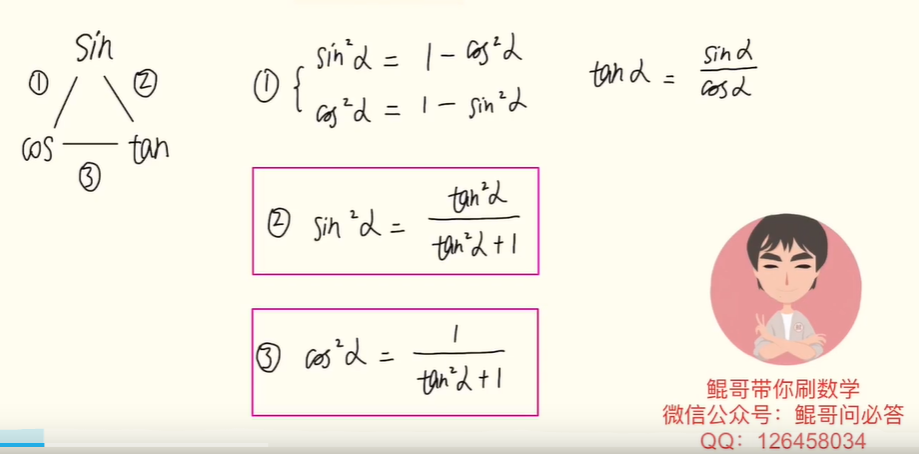 sin
① ②
cos tan
③
① { sin²α = 1 - cos²α
cos²α = 1 - sin²α
tanα = sinα / cosα
② sin²α = tan²α / (tan²α + 1)
③ cos²α = 1 / (tan²α + 1)
鲲哥带你刷数学
微信公众号：鲲哥问必答
QQ：126458034